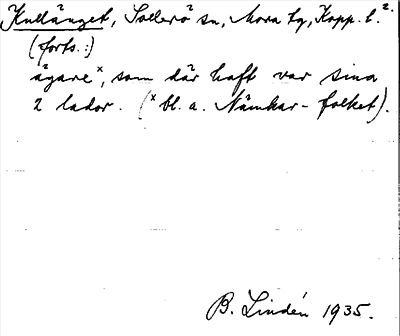 Kullänget, Sollerö sn, Mora tg, Kopp. l. 2.
(forts.:)
ägare x, som där haft var sina
2 lador. (x bl. a. Nämkar-folket).
B. Lindén 1935.